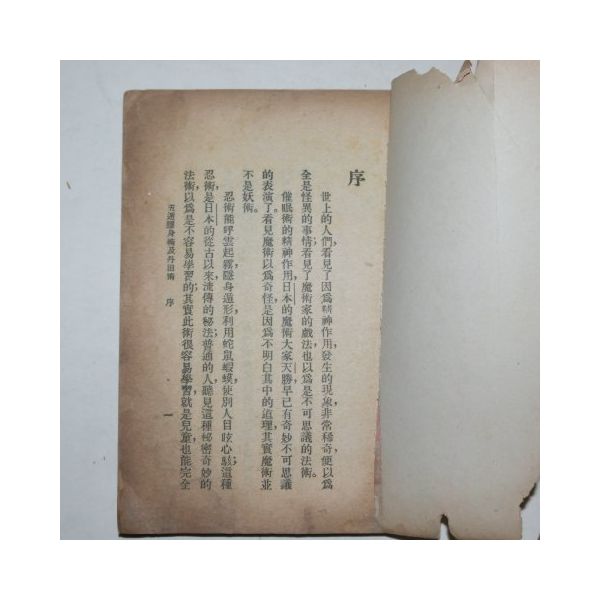 序
世上的人們，看見了因爲精神作用，發生的現象，非常稀奇，便以爲
全是怪異的事情；看見了魔術家的戲法，也以爲是不可思議的法術。
催眠術的精神作用，日本的魔術大家天勝，早已有奇妙不可思議
的表演了。看見魔術以爲奇怪，是因爲不明白其中的道理，其實魔術並
不是妖術。
忍術能呼雲起霧，隱身遁形，利用蛇鼠蝦蟆，使別人目眩心駭；這種
忍術，是日本的從古以來，流傳的秘法；普通的人，聽見這種秘密奇妙的
法術，以爲是不容易學習的，其實此術很容易學習，就是兒童，也能完全
五遁隱身術及丹田術　序　一